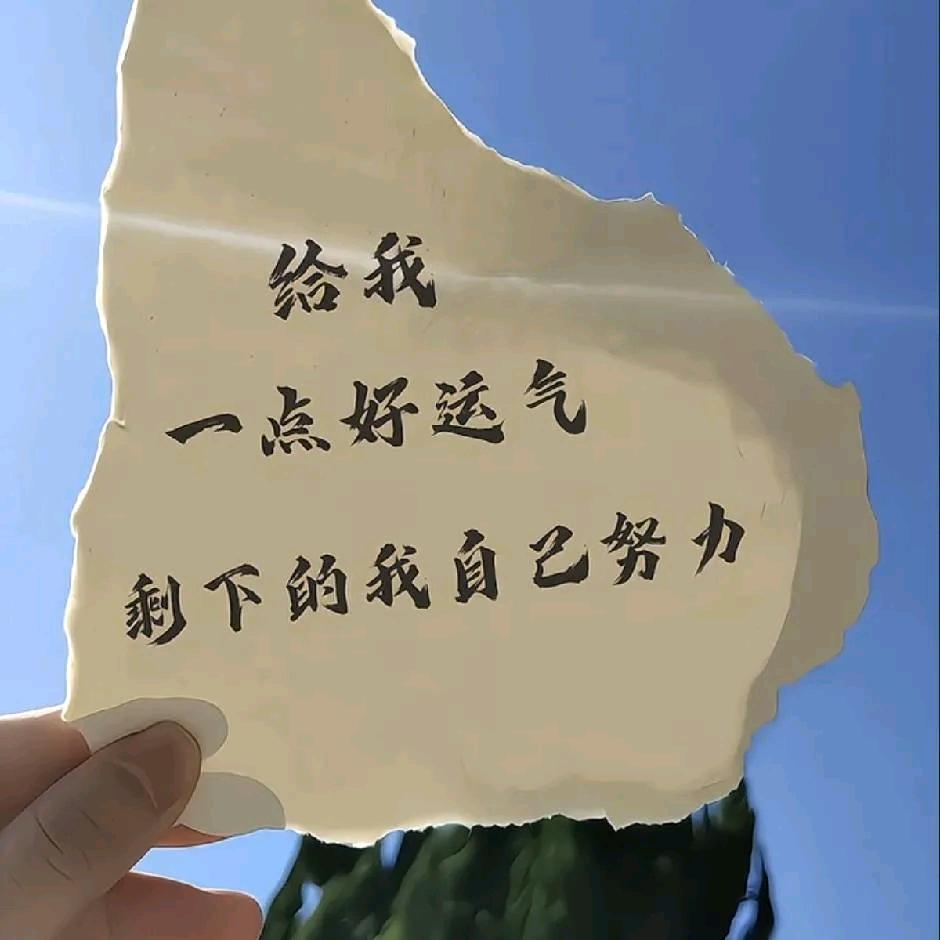 给我
一点好运气
剩下的我自己努力